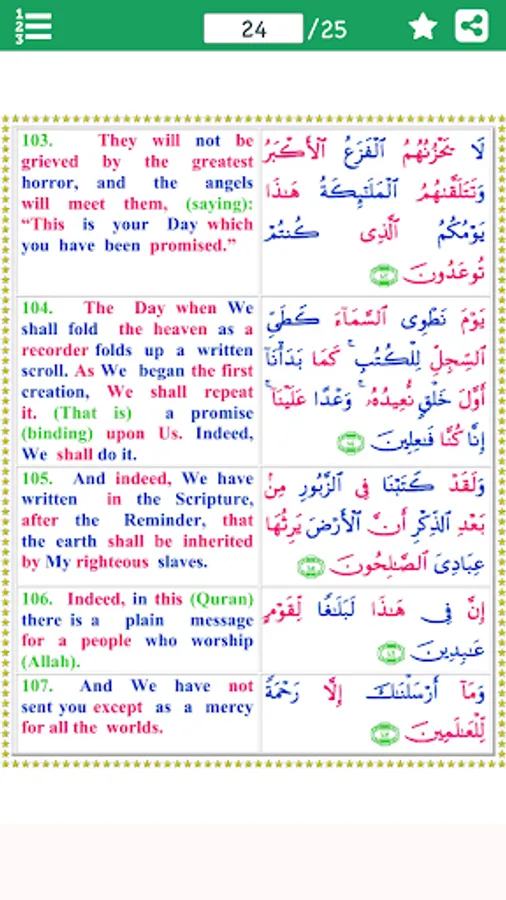 1
2
3
24 /25
103. They will not be
grieved by the greatest
horror, and the angels
will meet them, (saying):
“This is your Day which
you have been promised.”
لَا يَحْزُنُهُمُ ٱلْفَزَعُ ٱلْأَكْبَرُ
وَتَتَلَقَّىٰهُمُ ٱلْمَلَـٰٓئِكَةُ هَـٰذَا
يَوْمُكُمُ ٱلَّذِى كُنتُمْ
تُوعَدُونَ ١٠٣
104. The Day when We
shall fold the heaven as a
recorder folds up a written
scroll. As We began the first
creation, We shall repeat
it. (That is) a promise
(binding) upon Us. Indeed,
We shall do it.
يَوْمَ نَطْوِى ٱلسَّمَآءَ كَطَىِّ
ٱلسِّجِلِّ لِلْكُتُبِ ۚ كَمَا بَدَأْنَآ
أَوَّلَ خَلْقٍ نُّعِيدُهُۥ ۚ وَعْدًا عَلَيْنَآ ۚ
إِنَّا كُنَّا فَـٰعِلِينَ ١٠٤
105. And indeed, We have
written in the Scripture,
after the Reminder, that
the earth shall be inherited
by My righteous slaves.
وَلَقَدْ كَتَبْنَا فِى ٱلزَّبُورِ مِنۢ
بَعْدِ ٱلذِّكْرِ أَنَّ ٱلْأَرْضَ يَرِثُهَا
عِبَادِىَ ٱلصَّـٰلِحُونَ ١٠٥
106. Indeed, in this (Quran)
there is a plain message
for a people who worship
(Allah).
إِنَّ فِى هَـٰذَا لَبَلَـٰغًا لِّقَوْمٍ
عَـٰبِدِينَ ١٠٦
107. And We have not
sent you except as a mercy
for all the worlds.
وَمَآ أَرْسَلْنَـٰكَ إِلَّا رَحْمَةً
لِّلْعَـٰلَمِينَ ١٠٧